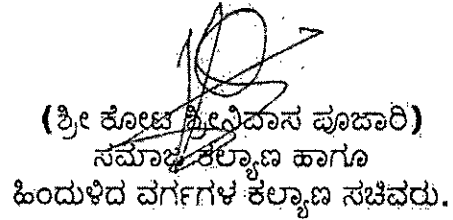 (ಶ್ರೀ ಕೋಟ ಶ್ರೀನಿವಾಸ ಪೂಜಾರಿ)
ಸಮಾಜ ಕಲ್ಯಾಣ ಹಾಗೂ
ಹಿಂದುಳಿದ ವರ್ಗಗಳ ಕಲ್ಯಾಣ ಸಚಿವರು.